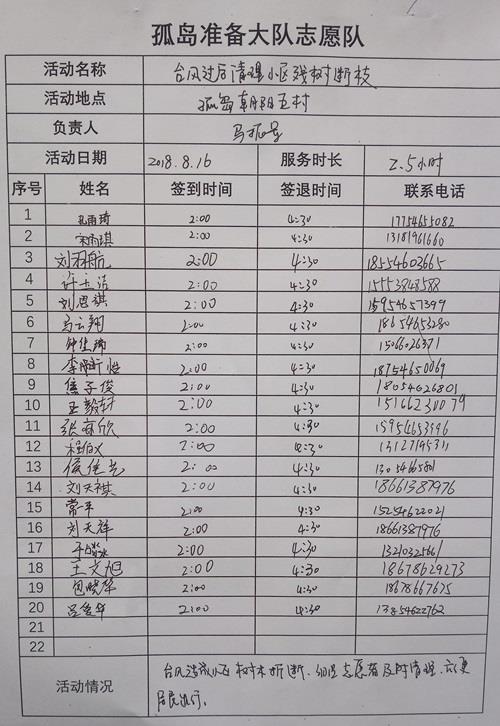 孤岛准备大队志愿队
活动名称 台风过后清理小区残树断枝
活动地点 孤岛朝阳五村
负责人 马振
活动日期 2018.8.16 服务时长 2.5小时
序号 姓名 签到时间 签退时间 联系电话
1 孔雨琦 2:00 4:30 17754655082
2 宋雨琪 2:00 4:30 13181961660
3 刘羽航 2:00 4:30 18554603665
4 许玉洁 2:00 4:30 15553848588
5 刘思琪 2:00 4:30 15954657399
6 马云翔 2:00 4:30 18654653280
7 钟佳 2:00 4:30 1506026371
8 李 2:00 4:30 18754650069
9 焦子俊 2:00 4:30 18054626801
10 王毅轩 2:00 4:30 15166230079
11 张家欣 2:00 4:30 15954653996
12 程 2:00 4:30 13127195311
13 侯佳 2:00 4:30
14 刘天祺 2:00 4:30 18661387976
15 常平 2:00 4:30 15254622021
16 刘天祥 2:00 4:30 18661387976
17 于 2:00 4:30 1321032566
18 王文旭 2:00 4:30 18678629273
19 包晓华 2:00 4:30 18678667675
20 吕 2:00 4:30 13854622762
21
22
台风造成小区树木折断、组织志愿者及时清理、方便
活动情况
居民出行。